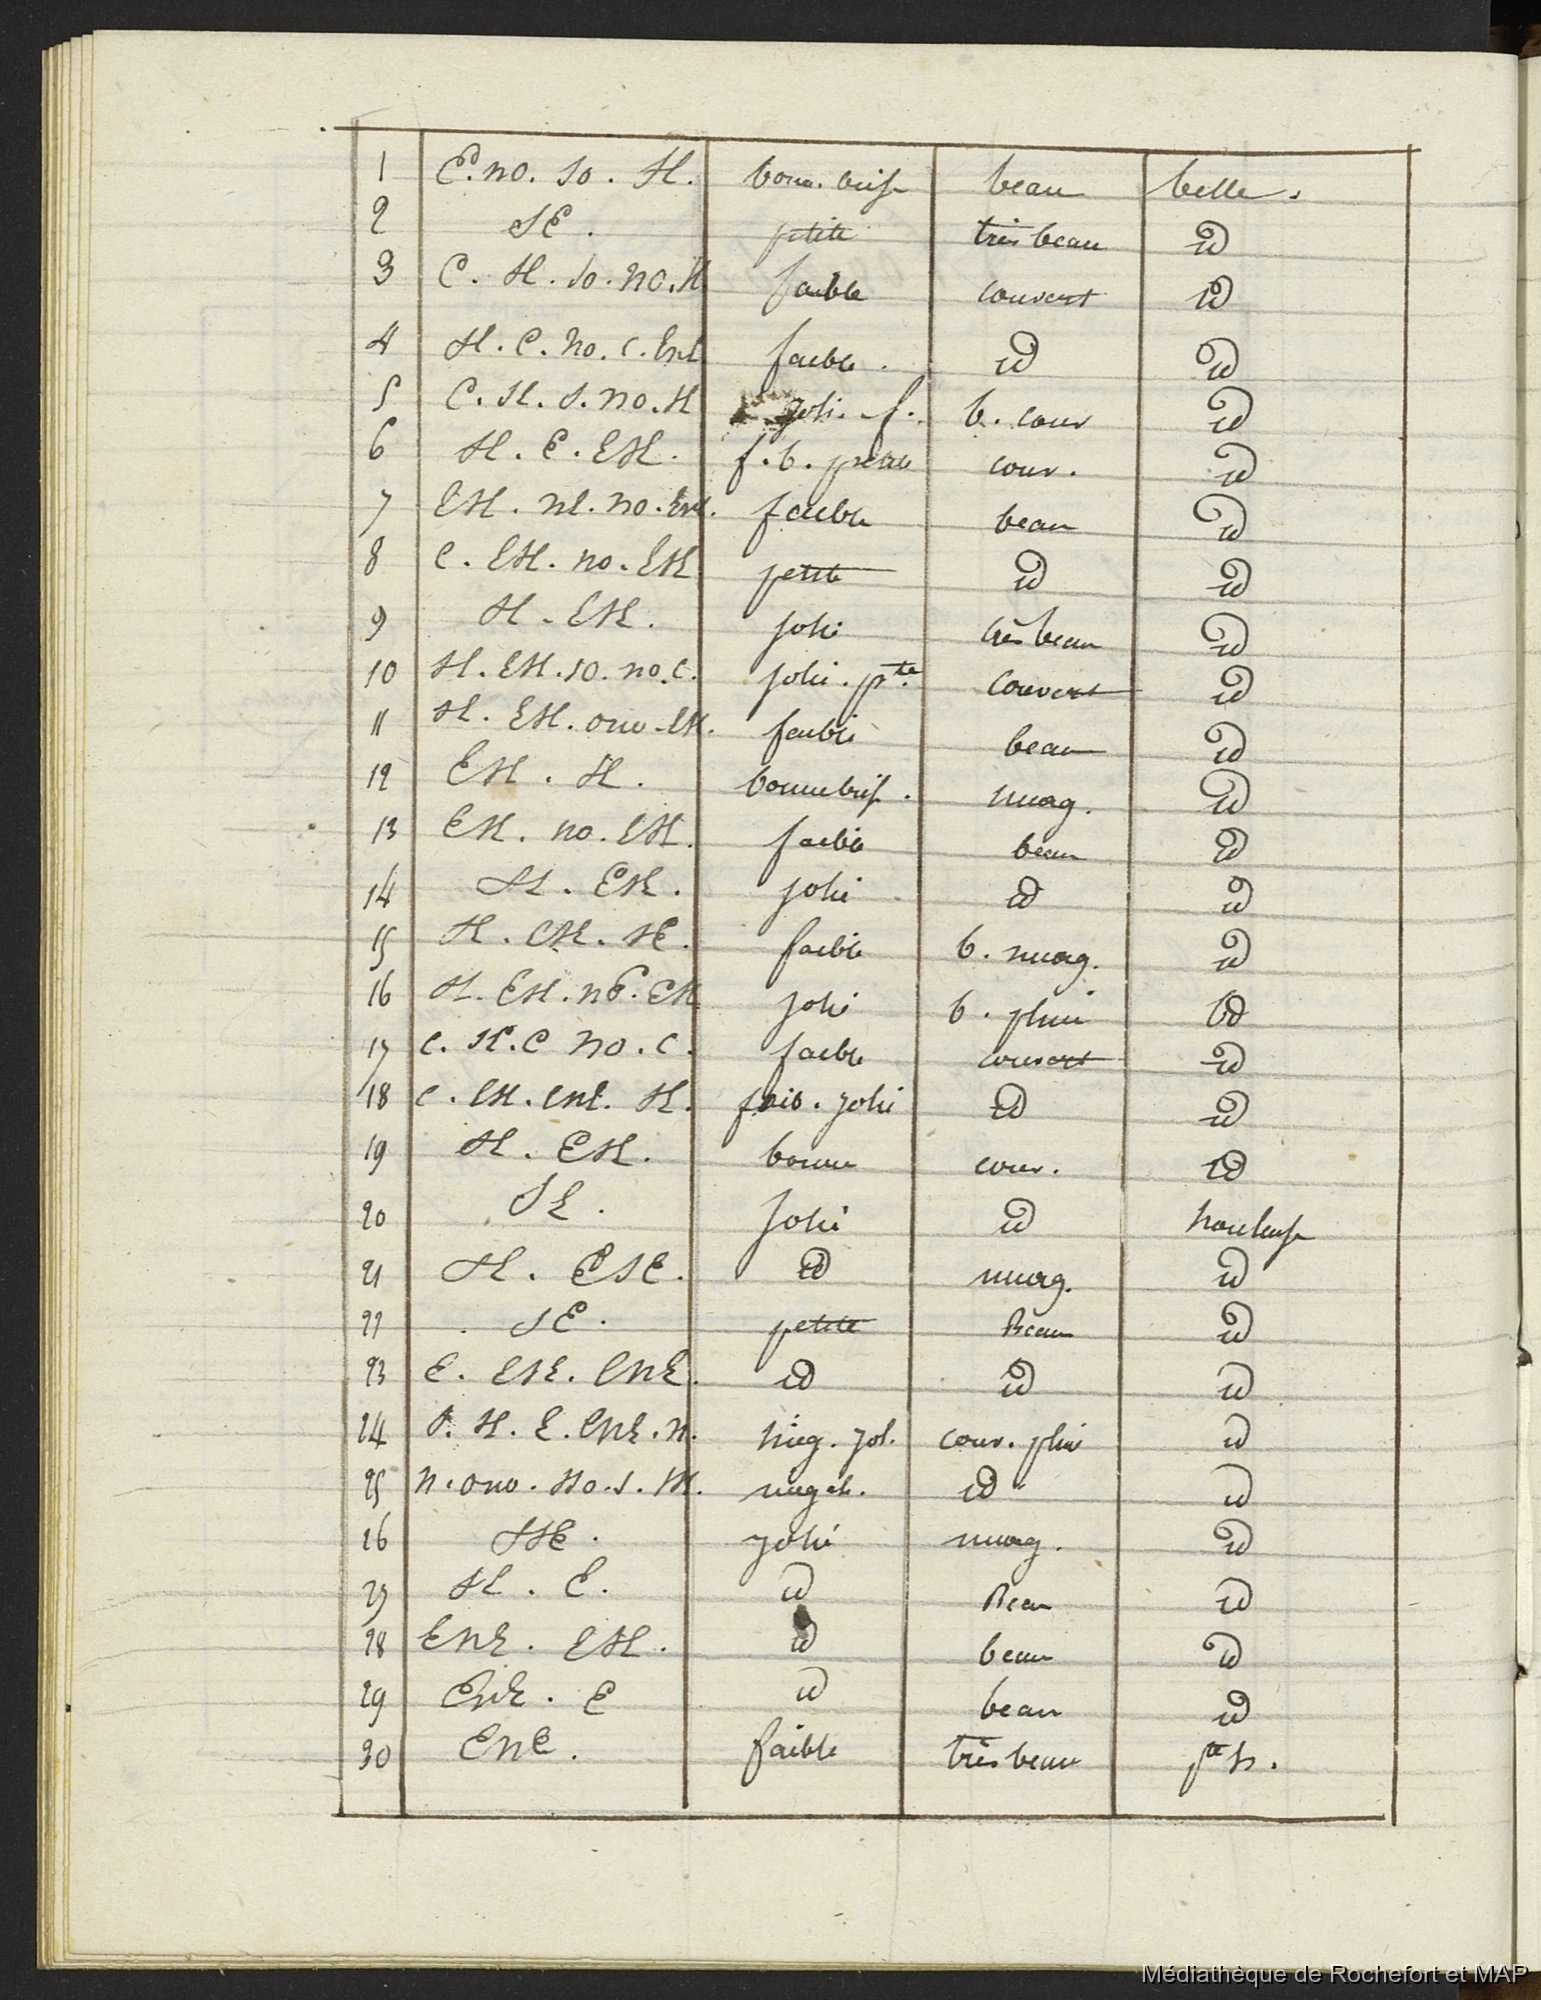 1 E. no. so. SE. bonn. bris beau belle.
2 SE. petite très beau id
3 E. SE. so. no. SE faible couvert id
4 SE. E. no. E. EnE faible. id id
5 E. SE. S. no. SE joli. f. b. couv id
6 SE. E. ESE. f. b. petite couv. id
7 ESE. nE. no. EnE. faible beau id
8 E. ESE. no. ESE petite id id
9 SE. ESE. joli très beau id
10 SE. ESE. so. no. E. joli. pte. couvert id
11 SE. ESE. ono. ESE. faible beau id
12 ESE. SE. bonne bris. nuag. id
13 ESE. no. ESE. faible beau id
14 SE. ESE. joli id id
15 SE. ESE. SE. faible b. nuag. id
16 SE. ESE. nE. ESE joli b. pluie id
17 E. SE. E no. E. faible couvert id
18 E. ESE. EnE. SE. faib. joli id id
19 SE. ESE. bonne couv. id
20 SE. joli id houleuse
21 SE. ESE. id nuag. id
22 SE. petite Beau id
23 E. ESE. EnE. id id id
24 S. SE. E. EnE. n. jol. couv. pluie id
25 n. ono. so. S. id id
26 SSE. joli nuag. id
27 SE. E. id Beau id
28 EnE. ESE. id beau id
29 EnE. E id beau id
30 EnE. faible très beau pte h.
Médiathèque de Rochefort et MAP